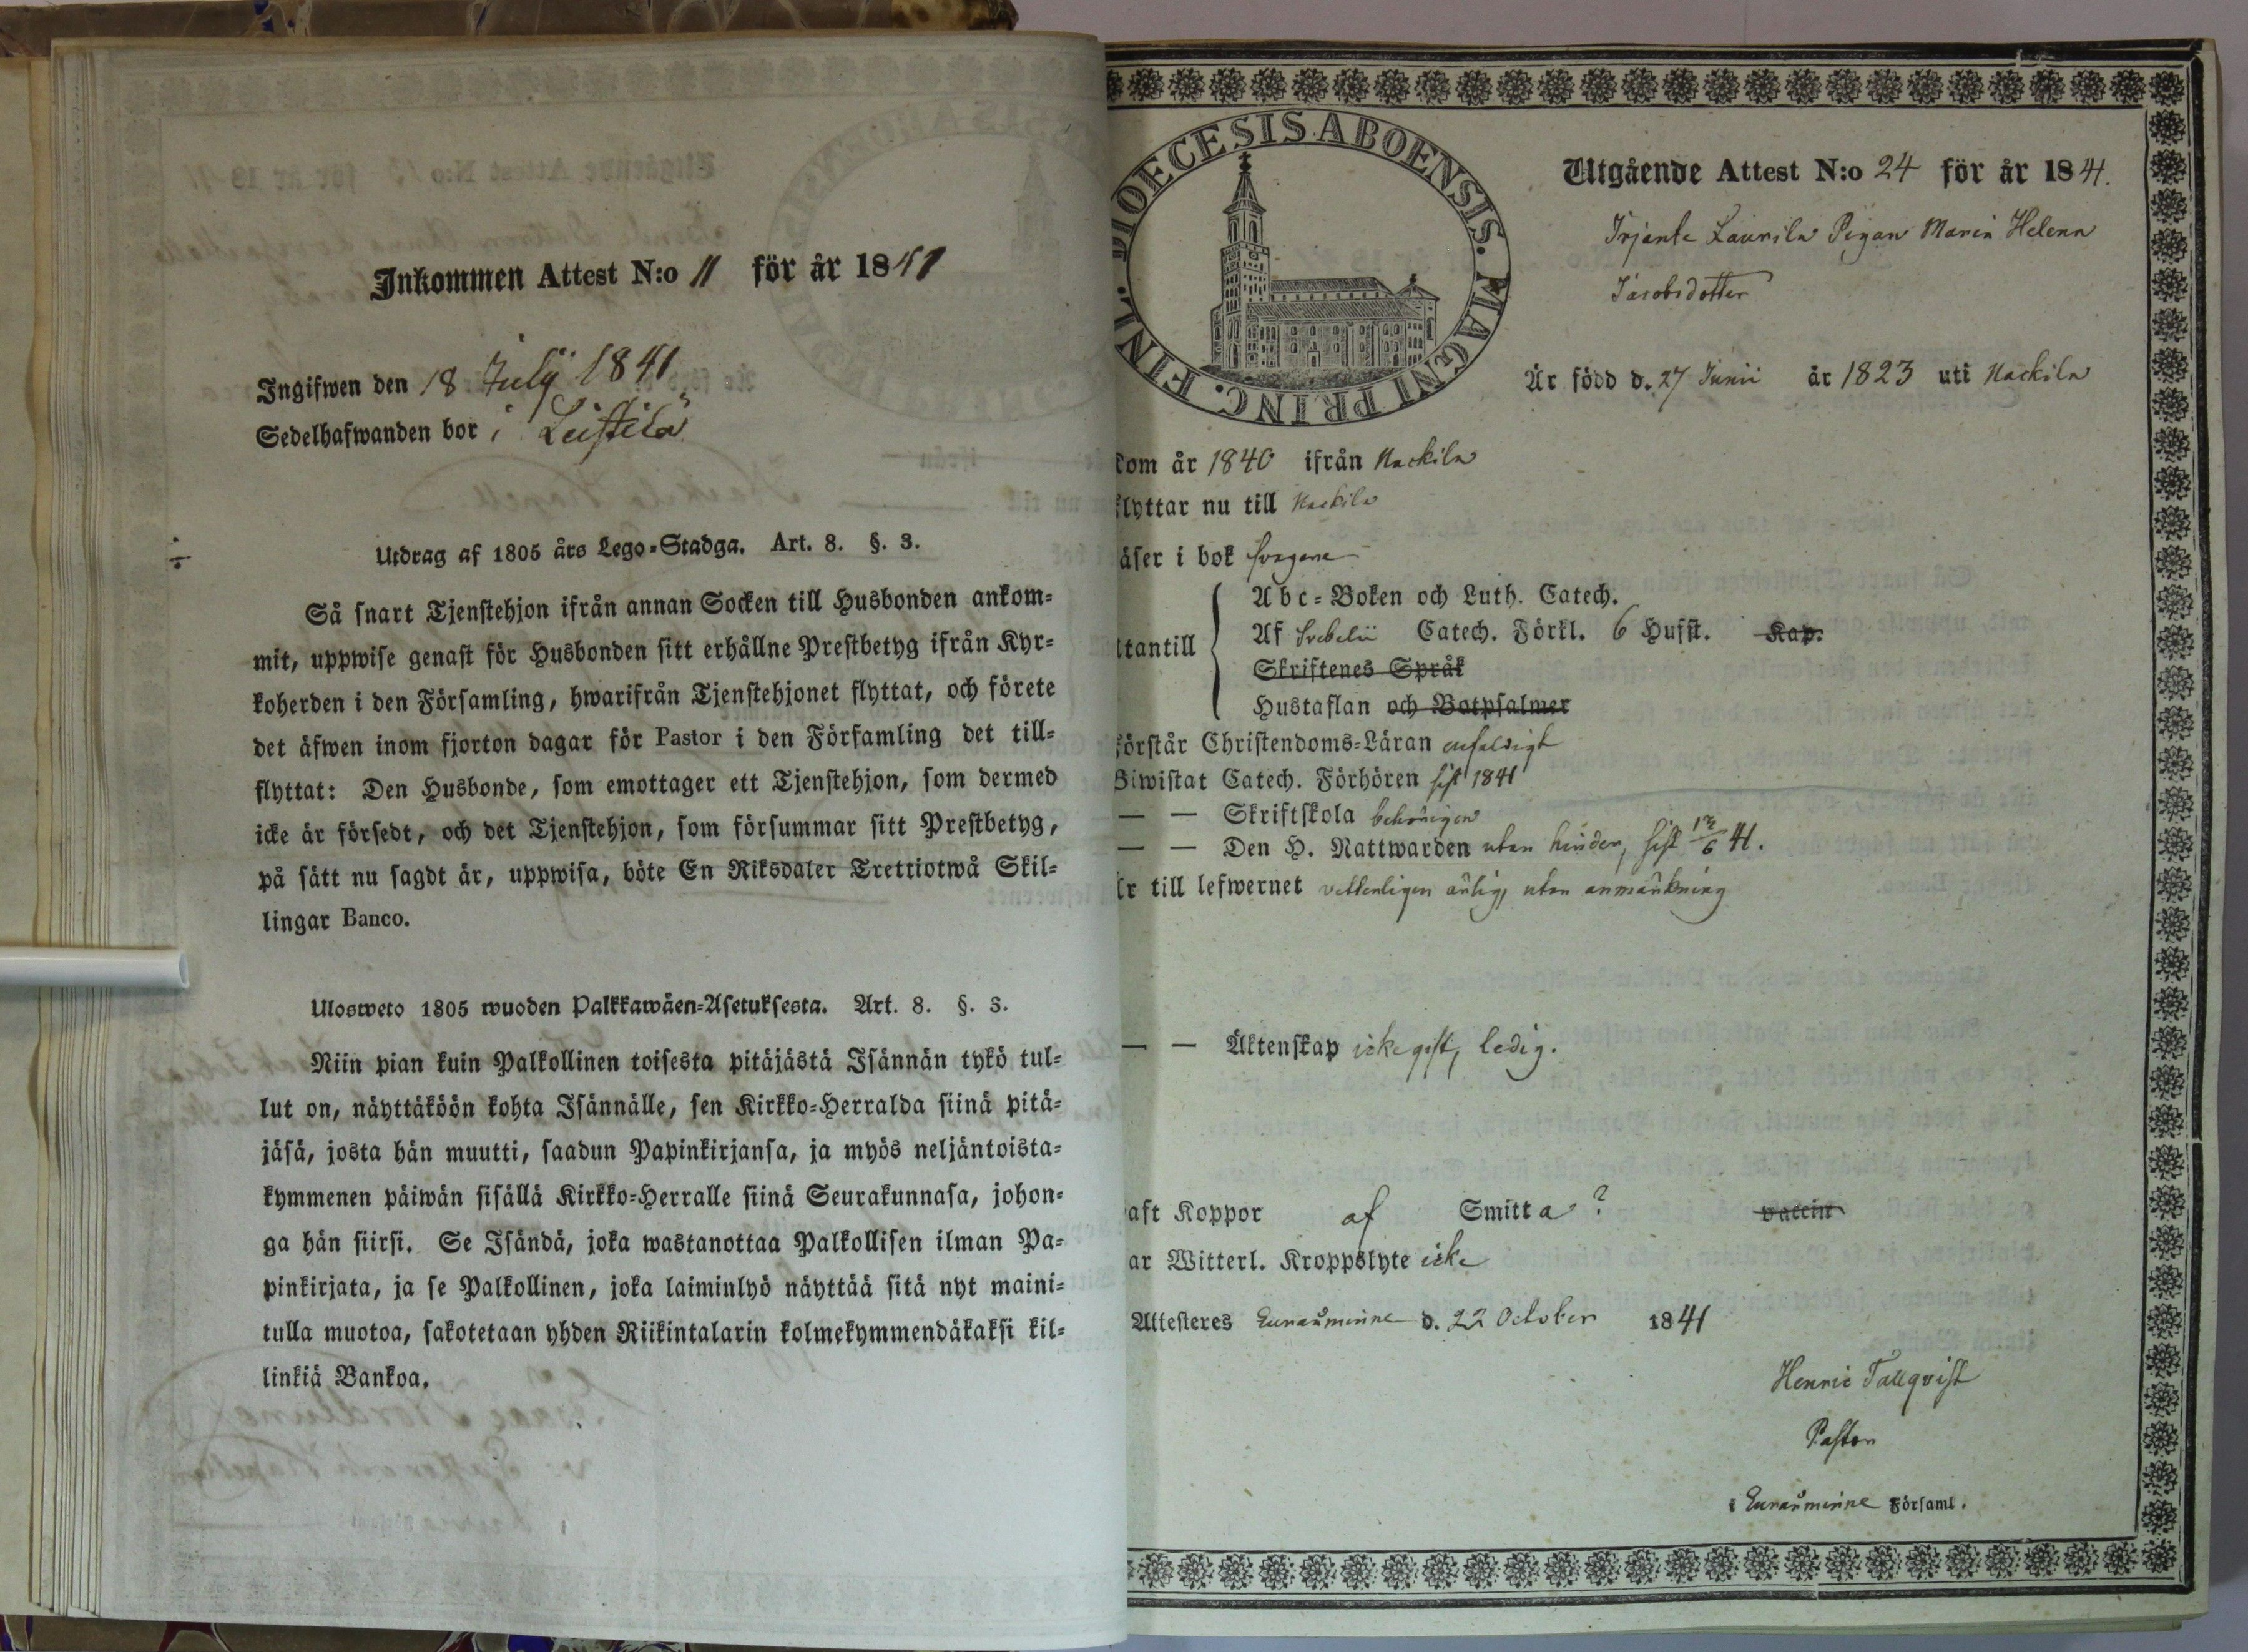 Inkommen Attest N:o 11 för år 1841
Ingifwen den 18 July 1841
Sedelhafwanden bor i Leistilä
Utdrag af 1805 års Lego-Stadga. Art. 8. §. 3.
Så snart Tjenstehjon ifrån annan Socken till Husbonden ankom-
mit, uppwise genast för Husbonden sitt erhållne Prestbetyg ifrån Kyr-
koherden i den Församling, hwarifrån Tjenstehjonet flyttat, och förete
det äfwen inom fjorton dagar för Pastor i den Församling det till-
flyttat: Den Husbonde, som emottager ett Tjenstehjon, som dermed
icke är försedt, och det Tjenstehjon, som försummar sitt Prestbetyg,
på sätt nu sagdt är, uppwisa, böte En Riksdaler Trettiotwå Skil-
lingar Banco.
Ulosweto 1805 wuoden Palkkawäen-Asetuksesta. Art. 8. §. 3.
Niin pian kuin Palkollinen toisesta pitäjästä Isännän tykö tul-
lut on, näyttäköön kohta Isännälle, sen Kirkko-Herralda siinä pitä-
jäsä, josta hän muutti, saadun Papinkirjansa, ja myös neljäntoista-
kymmenen päiwän sisällä Kirkko-Herralle siinä Seurakunnasa, johon-
ga hän siirsi. Se Isändä, joka wastanottaa Palkollisen ilman Pa-
pinkirjata, ja se Palkollinen, joka laiminlyö näyttää sitä nyt maini-
tulla muotoa, sakotetaan yhden Riikintalarin kolmekymmendäkaksi kil-
linkiä Bankoa.
DIOECESIS ABOENSIS. MAGNI PRINC. FINL.
Utgående Attest N:o 24 för år 1841.
Irjante Laurila Pigan Maria Helena
Jacobsdotter
Är född d. 27 Junii år 1823 uti Nackila
kom år 1840 ifrån Nackila
flyttar nu till Nackila
äser i bok svagare
Abc-Boken och Luth. Catech.
Af Svebelii Catech. Förkl. 6 Hufst. Kap.
tantill
Skriftenes Språk
Hustaflan och Botpsalmer
förstår Christendoms-Läran enfaldigt
Biwistat Catech. Förhören sist 1841
— — Skriftskola behörigen
— — Den H. Nattwarden utan hinder, sist 13/6 41.
Är till lefwernet vetterligen ärlig, utan anmärkning
— — Äktenskap icke gift, ledig.
aft Koppor af Smitta? vaccin
ar Witterl. Kroppslyte icke
Attesteres Euraåminne d. 22 October 1841
Henric Tallqvist
Pastor
i Euraåminne Församl.